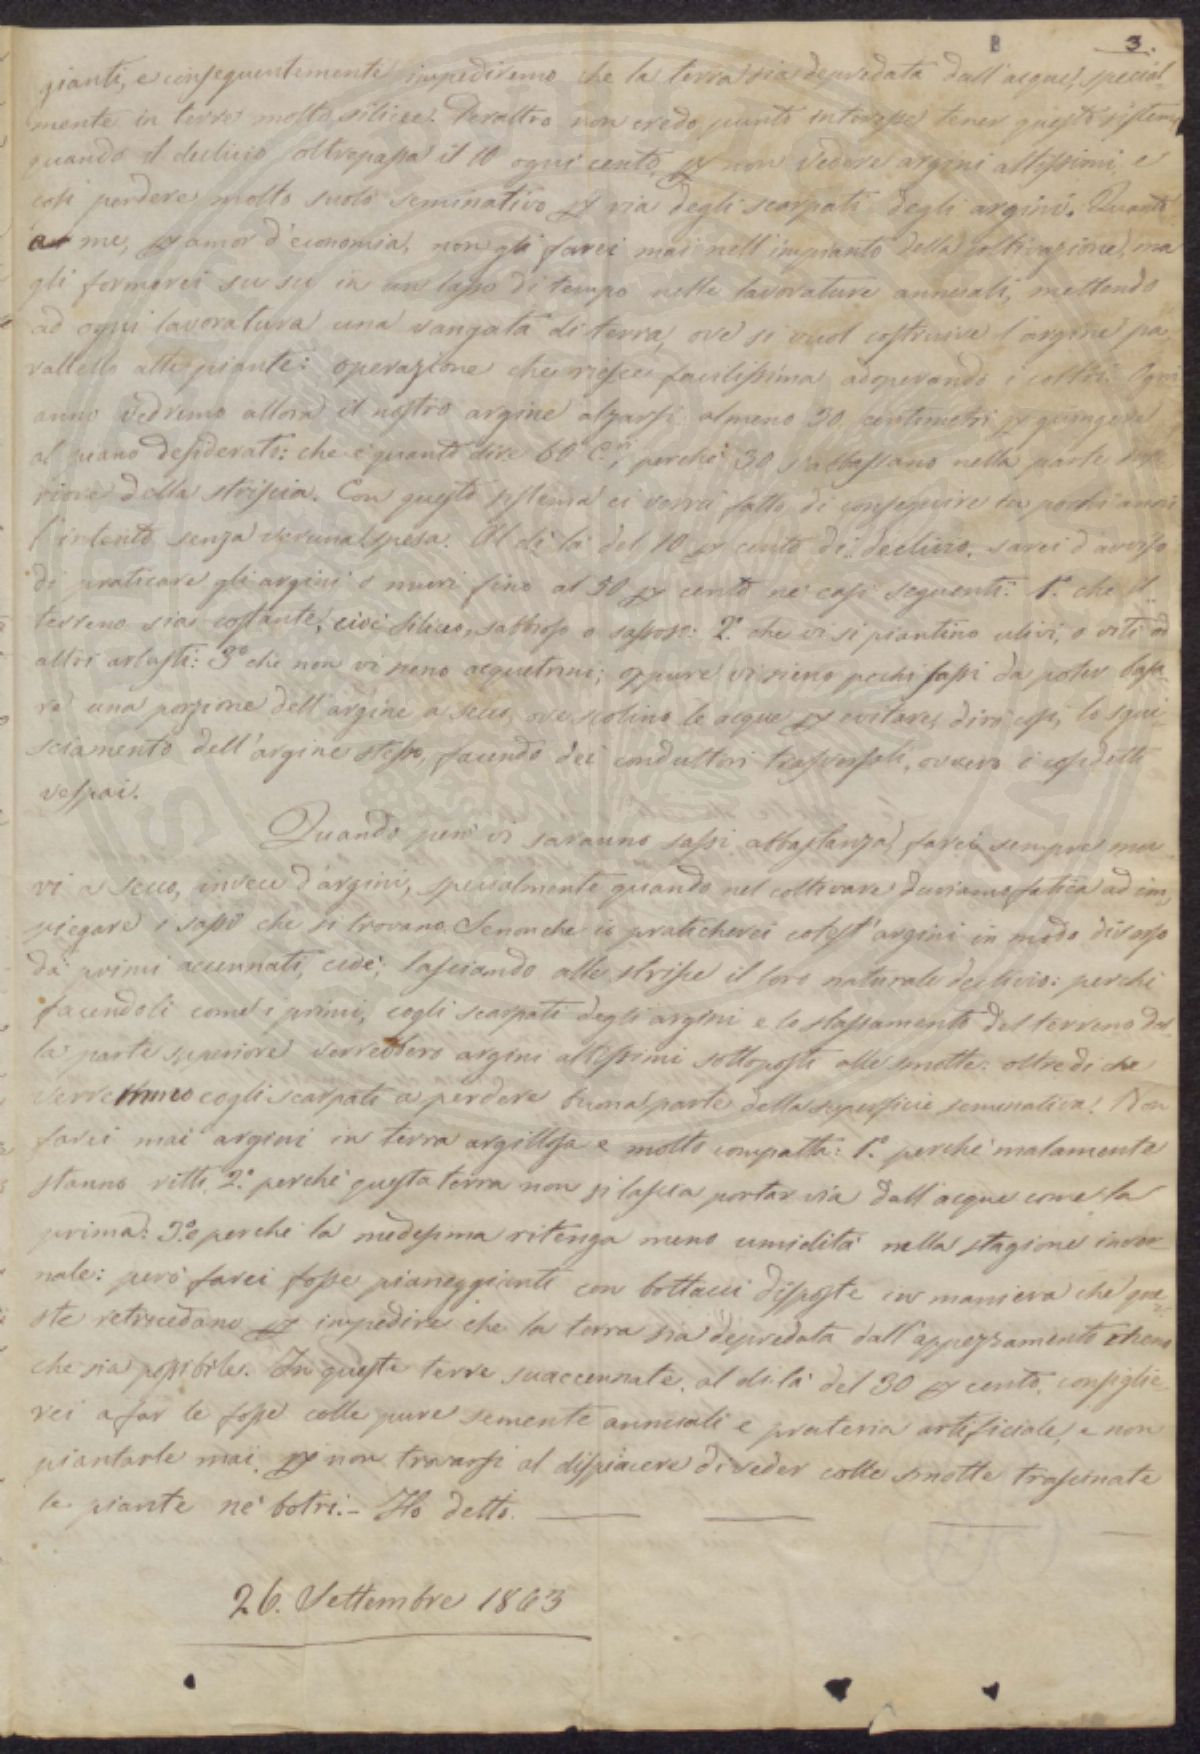 3.
gianti, e conseguentemente impediremo che la terra sia depredata dall'acque, special-
mente in terre molto silicee. Peraltro non credo punto interesse tener questo sistema
quando il declivio oltrepassa il 10 ogni cento, per non vedere argini altissimi, e
così perdere molto suolo seminativo per via degli scarpati degli argini. Quanto
a me, per amor d'economia, non gli farei mai nell'impianto della coltivazione, ma
gli formerei su su in un lasso di tempo nelle lavorature annuali, mettendo
ad ogni lavoratura una vangata di terra, ove si vuol costruire l'argine pa-
rallello alle piante: operazione che riesce facilissima adoperando i coltri. Ogni
anno vedremo allora il nostro argine alzarsi almeno 30 centimetri per giungere
al piano desiderato: che è quanto dire 60 C.ri, perchè 30 s'abbassano nella parte supe-
riore della striscia. Con questo sistema ci verrà fatto di conseguire in pochi anni
l'intento senza veruna spesa. Al di là del 10 per cento di declivio, sarei d'avviso
di praticare gli argini o muri fino al 50 per cento ne' casi seguenti: 1.° che il
terreno sia costante, cioè siliceo, sabbioso o sassoso: 2.° che vi si piantino ulivi, o viti od
altri arbusti: 3.° che non vi sieno acquitrini; oppure vi sieno pochi sassi da poter lascia-
re una porzione dell'argine a secco, ove scolino le acque per evitare, dirò così, lo sgui-
sciamento dell'argine stesso, facendo dei conduttori trasversali, ovvero i cosidetti
vespai.
Quando però vi saranno sassi abbastanza, farei sempre mu-
ri a secco, invece d'argini, specialmente quando nel coltivare duriamo fatica ad im-
piegare i sassi che si trovano. Senonchè io praticherei cotest'argini in modo diverso
da' primi accennati, cioè; lasciando alle strisce il loro naturale declivio: perchè
facendoli come i primi, cogli scarpati degli argini e lo stassamento del terreno dal-
la parte superiore verrebbero argini altissimi sottoposti alle smotte: oltre di che
verremmo cogli scarpati a perdere buona parte della superficie seminativa. Non
farei mai argini in terra argillosa e molto compatta: 1.° perchè malamente
stanno ritti, 2.° perchè questa terra non si lascia portar via dall'acque come la
prima: 3.° perchè la medesima ritenga meno umidità nella stagione inver-
nale: però farei fosse pianeggianti con bottacci disposte in maniera che que-
ste retrocedano per impedire che la terra sia depredata dall'appezzamento il meno
che sia possibile. In queste terre suaccennate, al di là del 30 per cento, consiglie-
rei a far le fosse colle pure semente annuali e prateria artificiale, e non
piantarle mai, per non trovarsi al dispiacere di veder colle smotte trascinate
le piante ne' botri. - Ho detto.
26. Settembre 1863